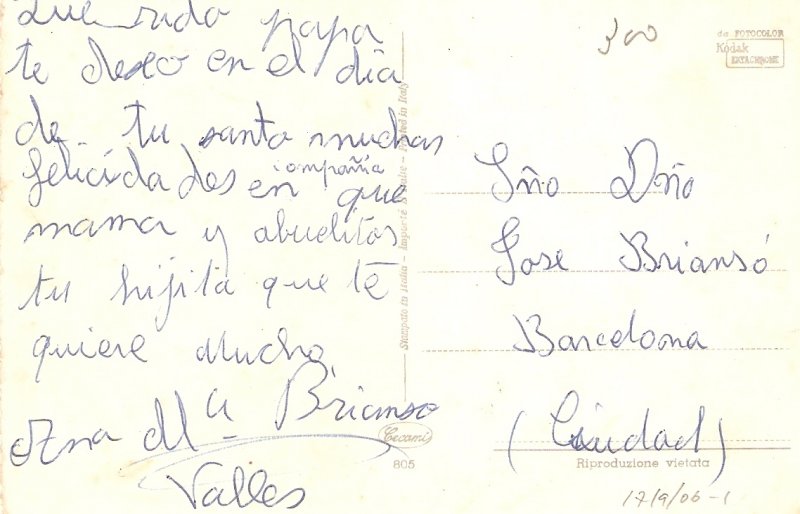 Querido papa
te deseo en el dia
de tu santo muchas
felicidades en compañia que
mama y abuelitos
tu hijita que te
quiere Mucho
Ana Mª Brianso
Valles
300
da FOTOCOLOR
Kodak
EKTACHROME
Sño Dño
Jose Briansó
Barcelona
(Ciudad)
Stampato in Italia - Importé d'Italie - Printed in Italy
Cecami
805
Riproduzione vietata
17/9/06-1